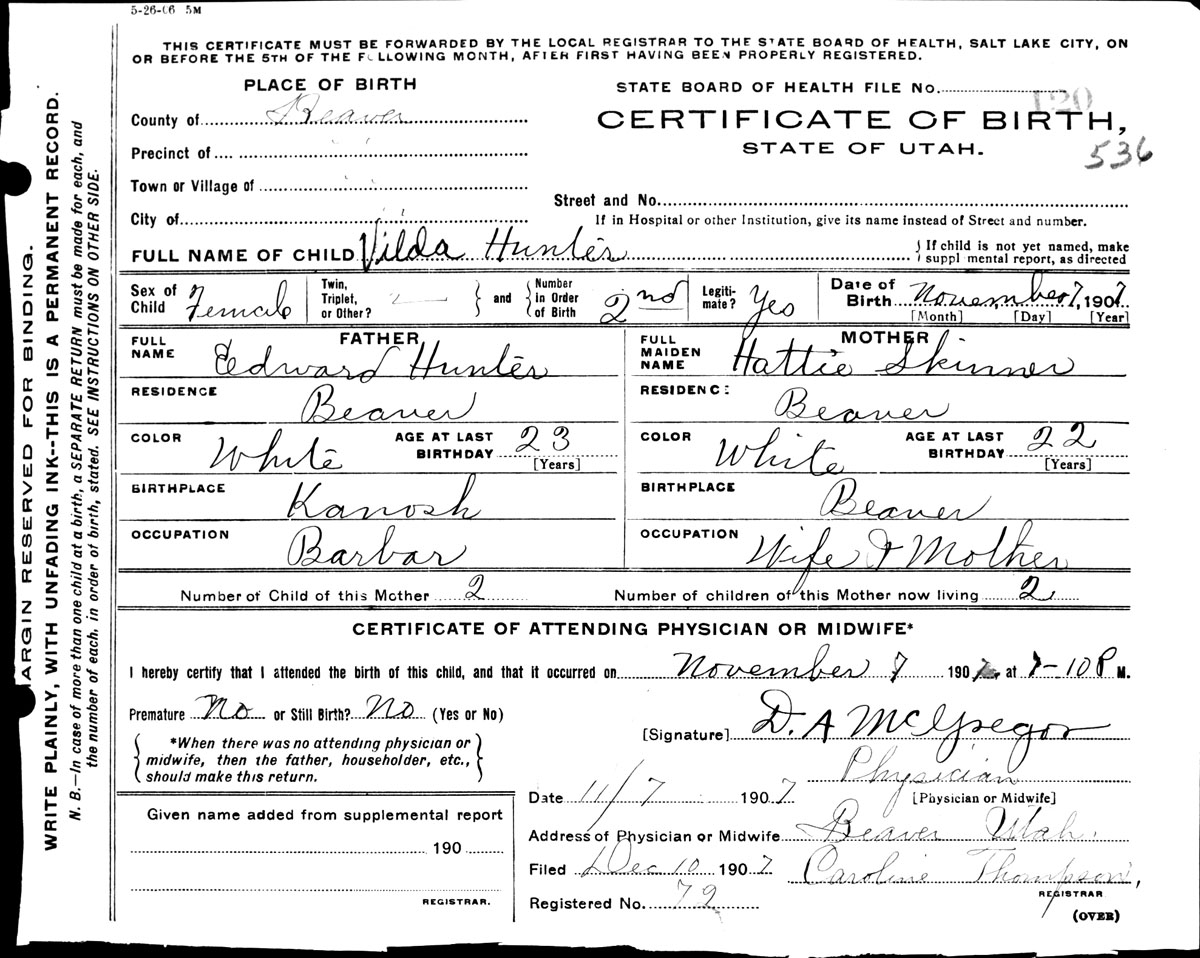 5-26-06 5M
THIS CERTIFICATE MUST BE FORWARDED BY THE LOCAL REGISTRAR TO THE STATE BOARD OF HEALTH, SALT LAKE CITY, ON
OR BEFORE THE 5TH OF THE FOLLOWING MONTH, AFTER FIRST HAVING BEEN PROPERLY REGISTERED.
PLACE OF BIRTH
County of Beaver
Precinct of
Town or Village of
City of
STATE BOARD OF HEALTH FILE No. 120
CERTIFICATE OF BIRTH,
STATE OF UTAH.
536
Street and No.
If in Hospital or other Institution, give its name instead of Street and number.
FULL NAME OF CHILD Vilda Hunter
{ If child is not yet named, make
supplmental report, as directed
Sex of Child Female
Twin, Triplet, or Other? —
} and { Number in Order of Birth 2nd
Legitimate? Yes
Date of Birth November 7, 1907
[Month] [Day] [Year]
FATHER
FULL NAME Edward Hunter
RESIDENCE Beaver
COLOR White AGE AT LAST BIRTHDAY 23
[Years]
BIRTHPLACE Kanosh
OCCUPATION Barbar
MOTHER
FULL MAIDEN NAME Hattie Skinner
RESIDENCE Beaver
COLOR White AGE AT LAST BIRTHDAY 22
[Years]
BIRTHPLACE Beaver
OCCUPATION Wife & Mother
Number of Child of this Mother 2 Number of children of this Mother now living 2
CERTIFICATE OF ATTENDING PHYSICIAN OR MIDWIFE*
I hereby certify that I attended the birth of this child, and that it occurred on November 7 1907, at 7-10 P M.
Premature No or Still Birth? No (Yes or No)
{ *When there was no attending physician or
midwife, then the father, householder, etc.,
should make this return. }
[Signature] D. A McGregor
Physician
[Physician or Midwife]
Date 11/7 1907
Address of Physician or Midwife Beaver Utah.
Filed Dec 10 1907 Caroline Thompson,
REGISTRAR
Registered No. 72
(OVER)
Given name added from supplemental report
190
REGISTRAR.
ARGIN RESERVED FOR BINDING.
WRITE PLAINLY, WITH UNFADING INK--THIS IS A PERMANENT RECORD.
N. B.—In case of more than one child at a birth, a SEPARATE RETURN must be made for each, and
the number of each, in order of birth, stated. SEE INSTRUCTIONS ON OTHER SIDE.